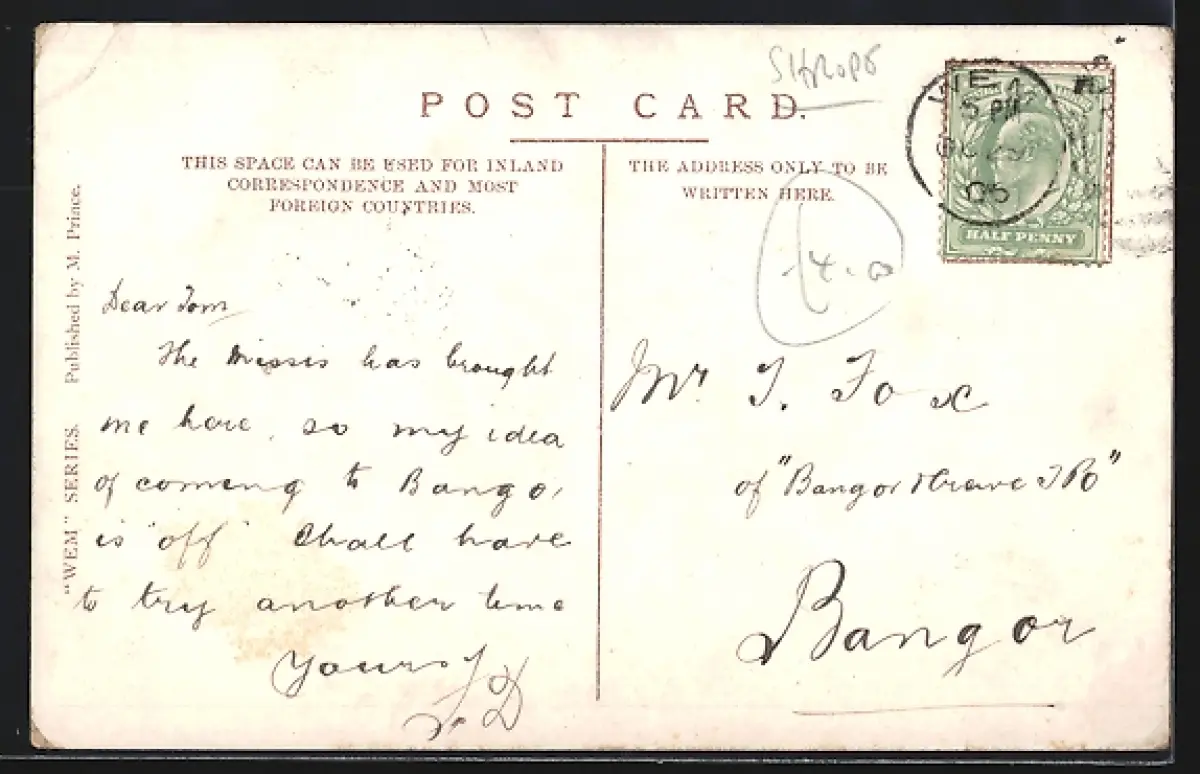 SHROPS
POST CARD.
THIS SPACE CAN BE USED FOR INLAND
CORRESPONDENCE AND MOST
FOREIGN COUNTRIES.
THE ADDRESS ONLY TO BE
WRITTEN HERE.
WEM
5 PM
05
HALF PENNY
4.0
"WEM" SERIES. Published by M. Prince.
Dear Tom
The Missis has brought
me here, so my idea
of coming to Bangor
is "off" Shall have
to try another time
Yours
J. D
Mr T. Fox
of "Bangor
Bangor